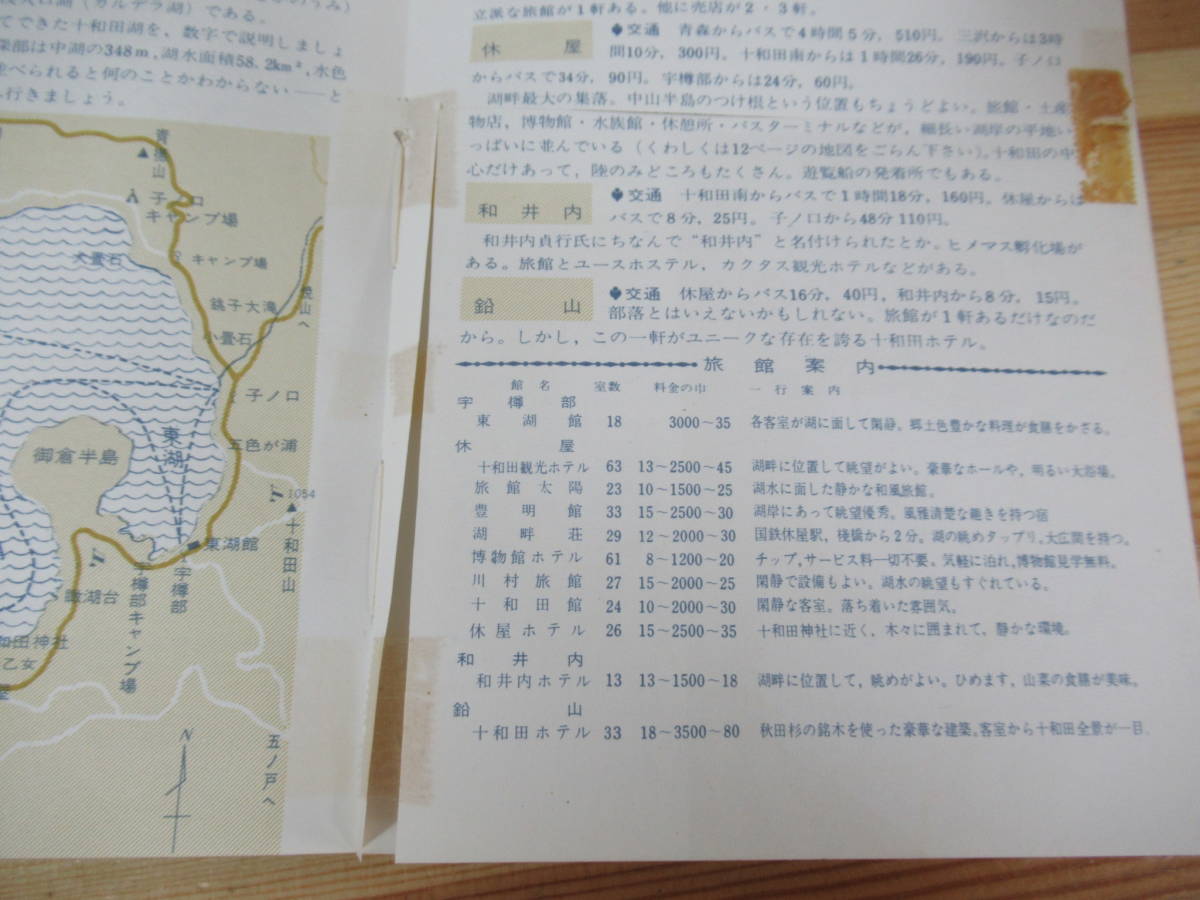 後火口湖（カルデラ湖）である。
てできた十和田湖を，数字で説明しましょ
深部は中湖の348m，湖水面積58.2km²，水色
べられると何のことかわからない――と
行きましょう。
青
山
子ノ口
キャンプ場
犬畳石
キャンプ場
銚子大滝
焼山へ
小畳石
子ノ口
東湖
五色が浦
御倉半島
1054
十和田山
東湖館
宇樽部
宇樽部キャンプ場
瞰湖台
和田神社
乙女
屋
N
五ノ戸へ
立派な旅館が1軒ある。他に売店が2・3軒。
休屋
◆交通 青森からバスで4時間5分，510円。三沢からは3時
間10分，300円。十和田南からは1時間26分，190円。子ノ口
からバスで34分，90円。宇樽部からは24分，60円。
湖畔最大の集落。中山半島のつけ根という位置もちょうどよい。旅館・土産
物店，博物館・水族館・休憩所・バスターミナルなどが，細長い湖岸の平地い
っぱいに並んでいる（くわしくは12ページの地図をごらん下さい）。十和田の中
心だけあって，陸のみどころもたくさん。遊覧船の発着所でもある。
和井内
◆交通 十和田南からバスで1時間18分，160円。休屋からは
バスで8分，25円。子ノ口から48分110円。
和井内貞行氏にちなんで“和井内”と名付けられたとか。ヒメマス孵化場が
ある。旅館とユースホステル，カクタス観光ホテルなどがある。
鉛山
◆交通 休屋からバス16分，40円，和井内から8分，15円。
部落とはいえないかもしれない。旅館が1軒あるだけなのだ
から。しかし，この一軒がユニークな存在を誇る十和田ホテル。
旅館案内
館名 室数 料金の巾 一行案内
宇樽部
東湖館 18 3000～35 各客室が湖に面して閑静。郷土色豊かな料理が食膳をかざる。
休屋
十和田観光ホテル 63 13～2500～45 湖畔に位置して眺望がよい。豪華なホールや，明るい大浴場。
旅館太陽 23 10～1500～25 湖水に面した静かな和風旅館。
豊明館 33 15～2500～30 湖岸にあって眺望優秀。風雅清楚な趣きを持つ宿
湖畔荘 29 12～2000～30 国鉄休屋駅，桟橋から2分。湖の眺めタップリ。大広間を持つ。
博物館ホテル 61 8～1200～20 チップ，サービス料一切不要。気軽に泊れ，博物館見学無料。
川村旅館 27 15～2000～25 閑静で設備もよい。湖水の眺望もすぐれている。
十和田館 24 10～2000～30 閑静な客室。落ち着いた雰囲気。
休屋ホテル 26 15～2500～35 十和田神社に近く，木々に囲まれて，静かな環境。
和井内
和井内ホテル 13 13～1500～18 湖畔に位置して，眺めがよい。ひめます，山菜の食膳が美味。
鉛山
十和田ホテル 33 18～3500～80 秋田杉の銘木を使った豪華な建築。客室から十和田全景が一目。